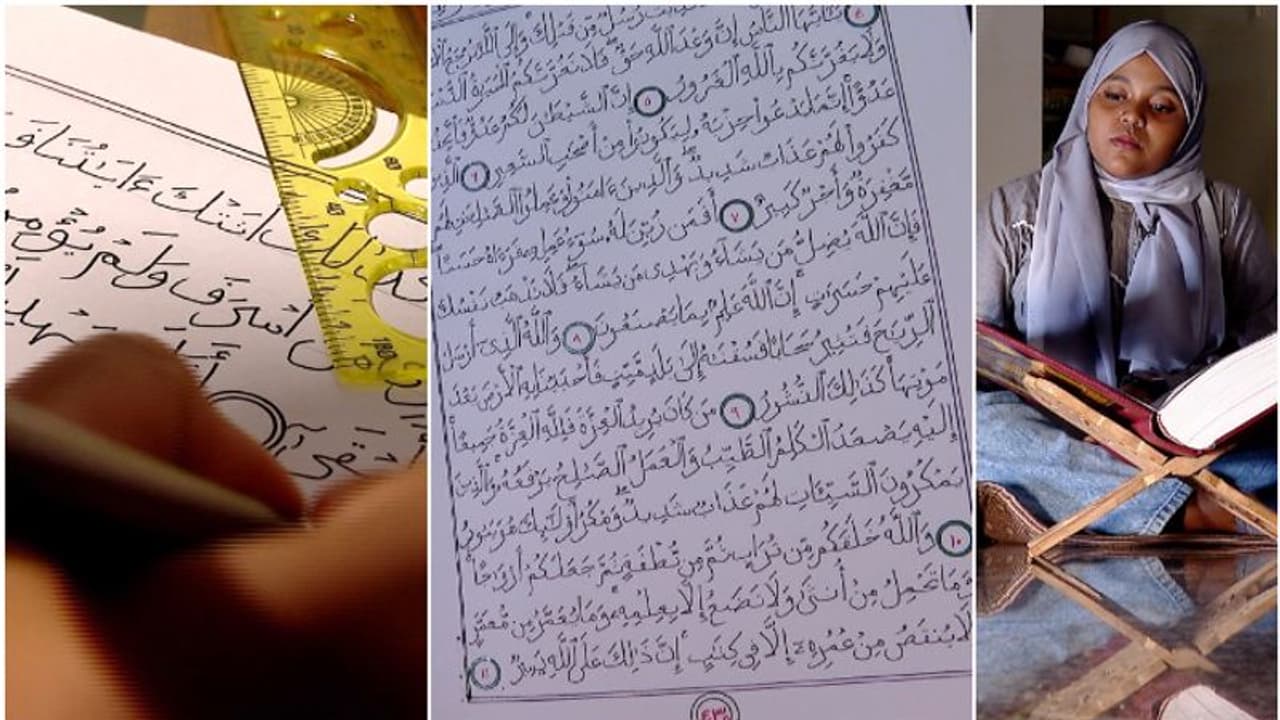 كَذَٰلِكَ أَتَتْكَ ءَايَٰتُنَا
مَنْ أَسْرَفَ وَلَمْ يُؤْمِنۢ
80
180
رُسُلٌ مِّن قَبْلِكَ وَإِلَى ٱللَّهِ تُرْجَعُ
٤ يَٰٓأَيُّهَا ٱلنَّاسُ إِنَّ وَعْدَ ٱللَّهِ حَقٌّ فَلَا تَغُرَّنَّكُمُ ٱلْحَيَوٰةُ ٱلدُّنْيَا
وَلَا يَغُرَّنَّكُم بِٱللَّهِ ٱلْغَرُورُ ٥ إِنَّ ٱلشَّيْطَٰنَ لَكُمْ عَدُوٌّ فَٱتَّخِذُوهُ
عَدُوًّا إِنَّمَا يَدْعُوا۟ حِزْبَهُۥ لِيَكُونُوا۟ مِنْ أَصْحَٰبِ ٱلسَّعِيرِ ٦ ٱلَّذِينَ
كَفَرُوا۟ لَهُمْ عَذَابٌ شَدِيدٌ وَٱلَّذِينَ ءَامَنُوا۟ وَعَمِلُوا۟ ٱلصَّٰلِحَٰتِ لَهُم
مَّغْفِرَةٌ وَأَجْرٌ كَبِيرٌ ٧ أَفَمَن زُيِّنَ لَهُۥ سُوٓءُ عَمَلِهِۦ فَرَءَاهُ حَسَنًا
فَإِنَّ ٱللَّهَ يُضِلُّ مَن يَشَآءُ وَيَهْدِى مَن يَشَآءُ فَلَا تَذْهَبْ نَفْسُكَ
عَلَيْهِمْ حَسَرَٰتٍ إِنَّ ٱللَّهَ عَلِيمٌۢ بِمَا يَصْنَعُونَ ٨ وَٱللَّهُ ٱلَّذِىٓ أَرْسَلَ
ٱلرِّيَٰحَ فَتُثِيرُ سَحَابًا فَسُقْنَٰهُ إِلَىٰ بَلَدٍ مَّيِّتٍ فَأَحْيَيْنَا بِهِ ٱلْأَرْضَ بَعْدَ
مَوْتِهَا كَذَٰلِكَ ٱلنُّشُورُ ٩ مَن كَانَ يُرِيدُ ٱلْعِزَّةَ فَلِلَّهِ ٱلْعِزَّةُ جَمِيعًا
إِلَيْهِ يَصْعَدُ ٱلْكَلِمُ ٱلطَّيِّبُ وَٱلْعَمَلُ ٱلصَّٰلِحُ يَرْفَعُهُۥ وَٱلَّذِينَ
يَمْكُرُونَ ٱلسَّيِّـَٔاتِ لَهُمْ عَذَابٌ شَدِيدٌ وَمَكْرُ أُو۟لَٰٓئِكَ هُوَ يَبُورُ
١٠ وَٱللَّهُ خَلَقَكُم مِّن تُرَابٍ ثُمَّ مِن نُّطْفَةٍ ثُمَّ جَعَلَكُمْ أَزْوَٰجًا
وَمَا تَحْمِلُ مِنْ أُنثَىٰ وَلَا تَضَعُ إِلَّا بِعِلْمِهِۦ وَمَا يُعَمَّرُ مِن مُّعَمَّرٍ
وَلَا يُنقَصُ مِنْ عُمُرِهِۦٓ إِلَّا فِى كِتَٰبٍ إِنَّ ذَٰلِكَ عَلَى ٱللَّهِ يَسِيرٌ ١١
٤٣٥